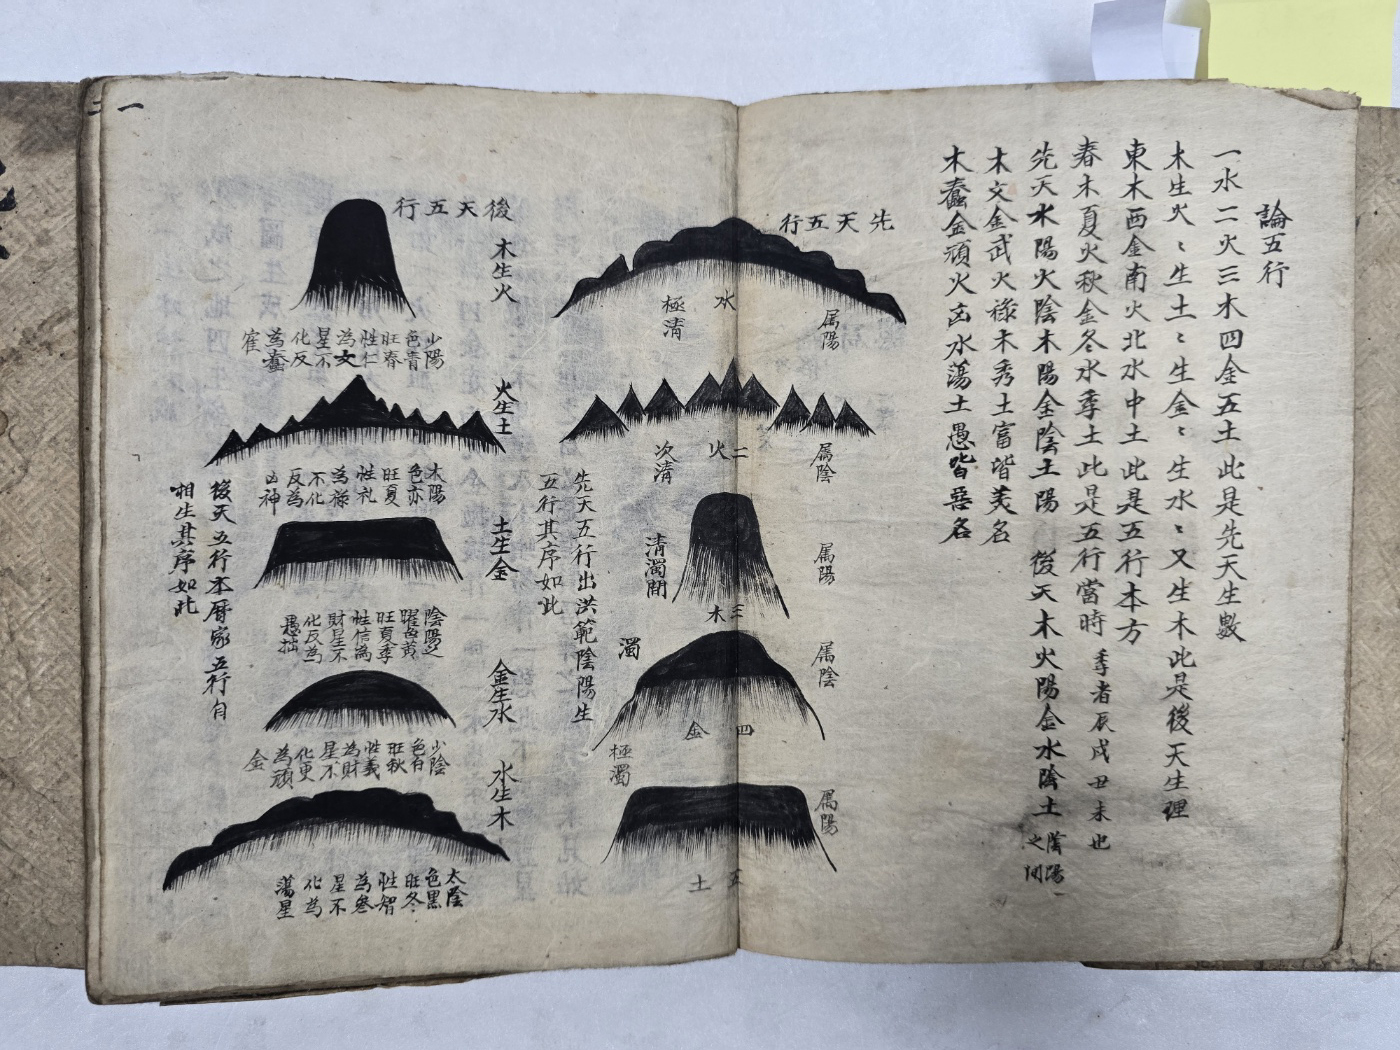 論五行
一水二火三木四金五土此是先天生數
木生火〻生土〻生金〻生水〻又生木此是後天生理
東木西金南火北水中土此是五行本方
春木夏火秋金冬水季土此是五行當時 季者辰戌丑未也
先天水陽火陰木陽金陰土陽 後天木火陽金水陰土 陰陽之間
木文金武火祿木秀土富皆美名
木蠢金頑火凶水蕩土愚皆惡名
先天五行
属陽
水
極清
属陰
二火
次清
属陽
三木
清濁間
属陰
四金
濁
属陽
五土
極濁
先天五行出洪範陰陽生
五行其序如此
後天五行
木生火
少陽
色青
旺春
性仁
為文
星不
化反
為蠢
火生土
太陽
色赤
旺夏
性礼
為祿
不化
反為
凶神
土生金
陰陽之
躍色黄
旺夏季
性信為
財星不
化反為
愚拙
金生水
少陰
色白
旺秋
性義
為財
星不
化更
為頑
金
水生木
太陰
色黑
旺冬
性智
為
星不
化為
蕩星
後天五行本曆家五行自
相生其序如此
一